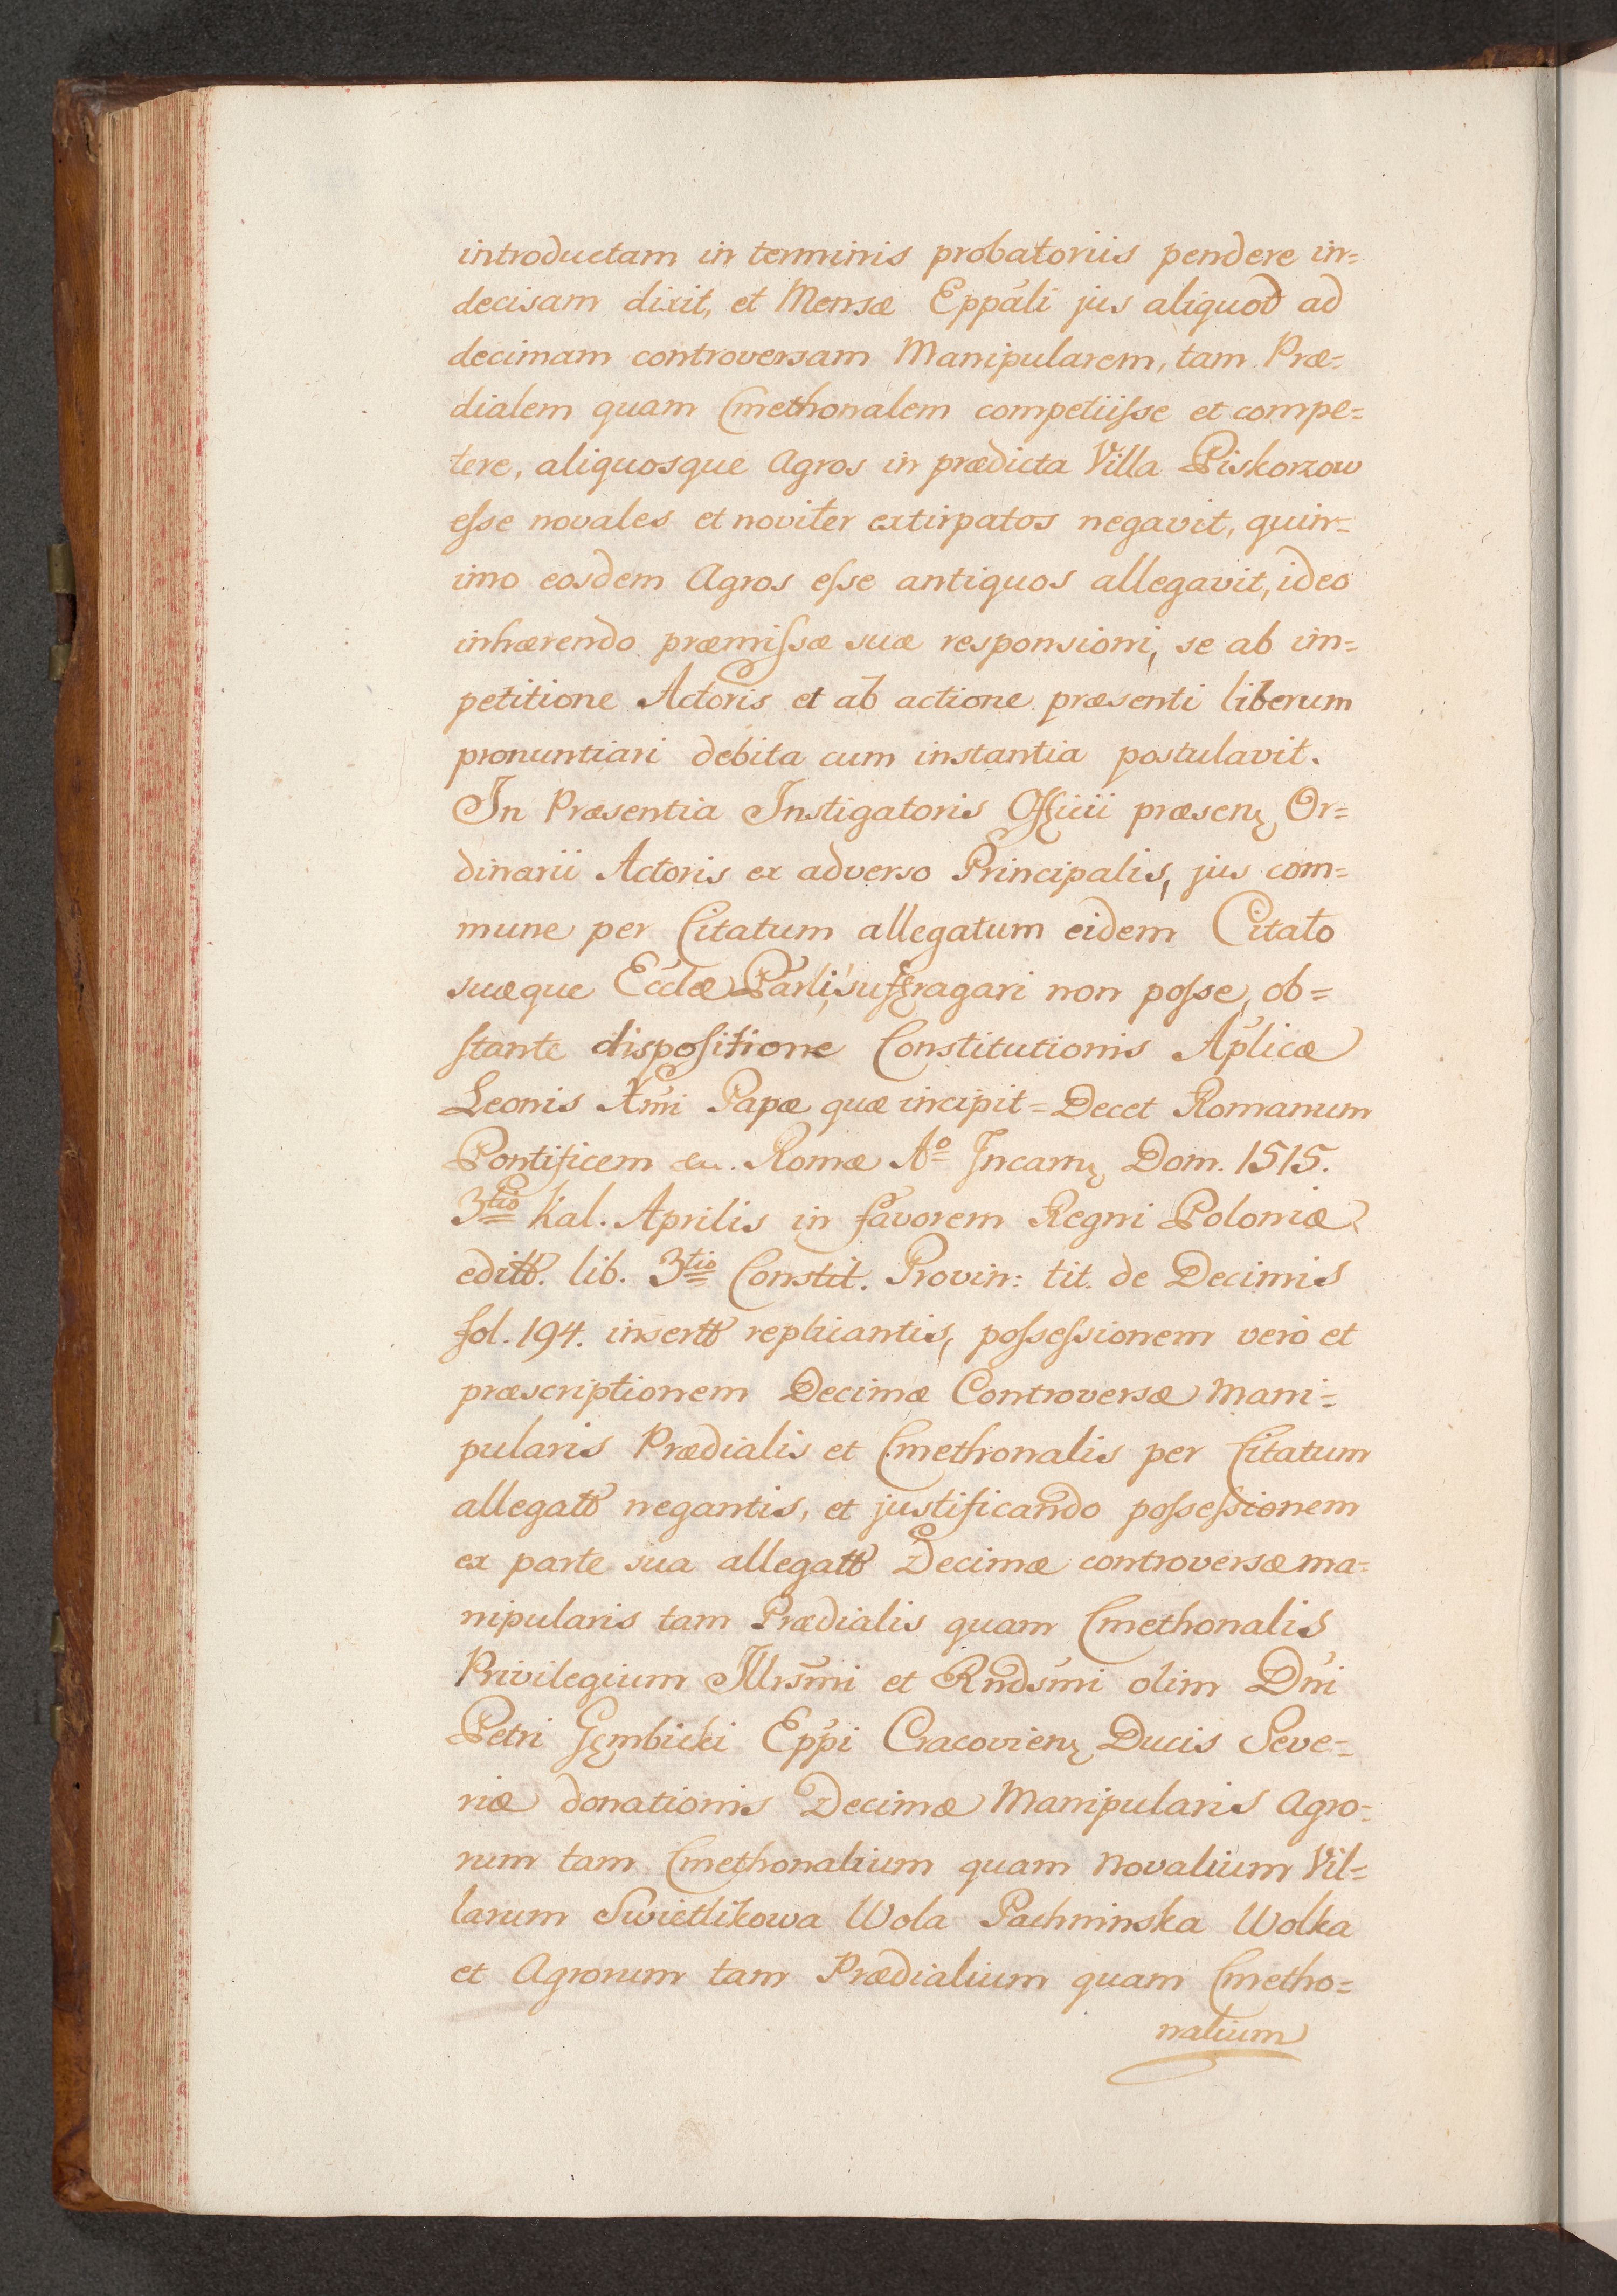 introductam in terminis probatoriis pendere in=
decisam dixit, et Mensæ Eppáli jus aliquod ad
decimam controversam Manipularem, tam Præ=
dialem quam Cmethonalem competiiſse et compe=
tere, aliquosque Agros in prædicta Villa Piskorzow
eſse novales et noviter extirpatos negavit, quin=
imo eosdem Agros eſse antiquos allegavit, ideo
inhærendo præmiſsæ suæ responsioni, se ab im=
petitione Actoris et ab actione præsenti liberum
pronuntiari debita cum instantia postulavit.
In Præsentia Instigatoris Officii præsenę Or=
dinarii Actoris ex adverso Principalis, jus com=
mune per Citatum allegatum eidem Citato
suæque Ecclæ Parli, suffragari non poſse, ob=
ſtante dispoſitione Constitutionis Aplicæ
Leonis Xmi Papæ quæ incipit = Decet Romanum
Pontificem &c. Romæ Aº Incarnę Dom. 1515.
3tio Kal. Aprilis in favorem Regni Poloniæ
editæ. lib. 3tio Constit. Provin: tit. de Decimis
fol. 194. insertæ replicantis, poſseſsionem vero et
præscriptionem Decimæ Controversæ Mani=
pularis Prædialis et Cmethonalis per Citatum
allegatæ negantis, et justificando poſseſsionem
ex parte sua allegatæ Decimæ controversæ ma=
nipularis tam Prædialis quam Cmethonalis
Privilegium Illrsmi et Rndsmi olim Dni
Petri Gęmbicki Eppi Cracovienę Ducis Seve=
riæ donationis Decimæ Manipularis Agro=
rum tam Cmethonalium quam Novalium Vil=
larum Swietlikowa Wola Pachninska Wolka
et Agrorum tam Prædialium quam Cmetho=
nalium